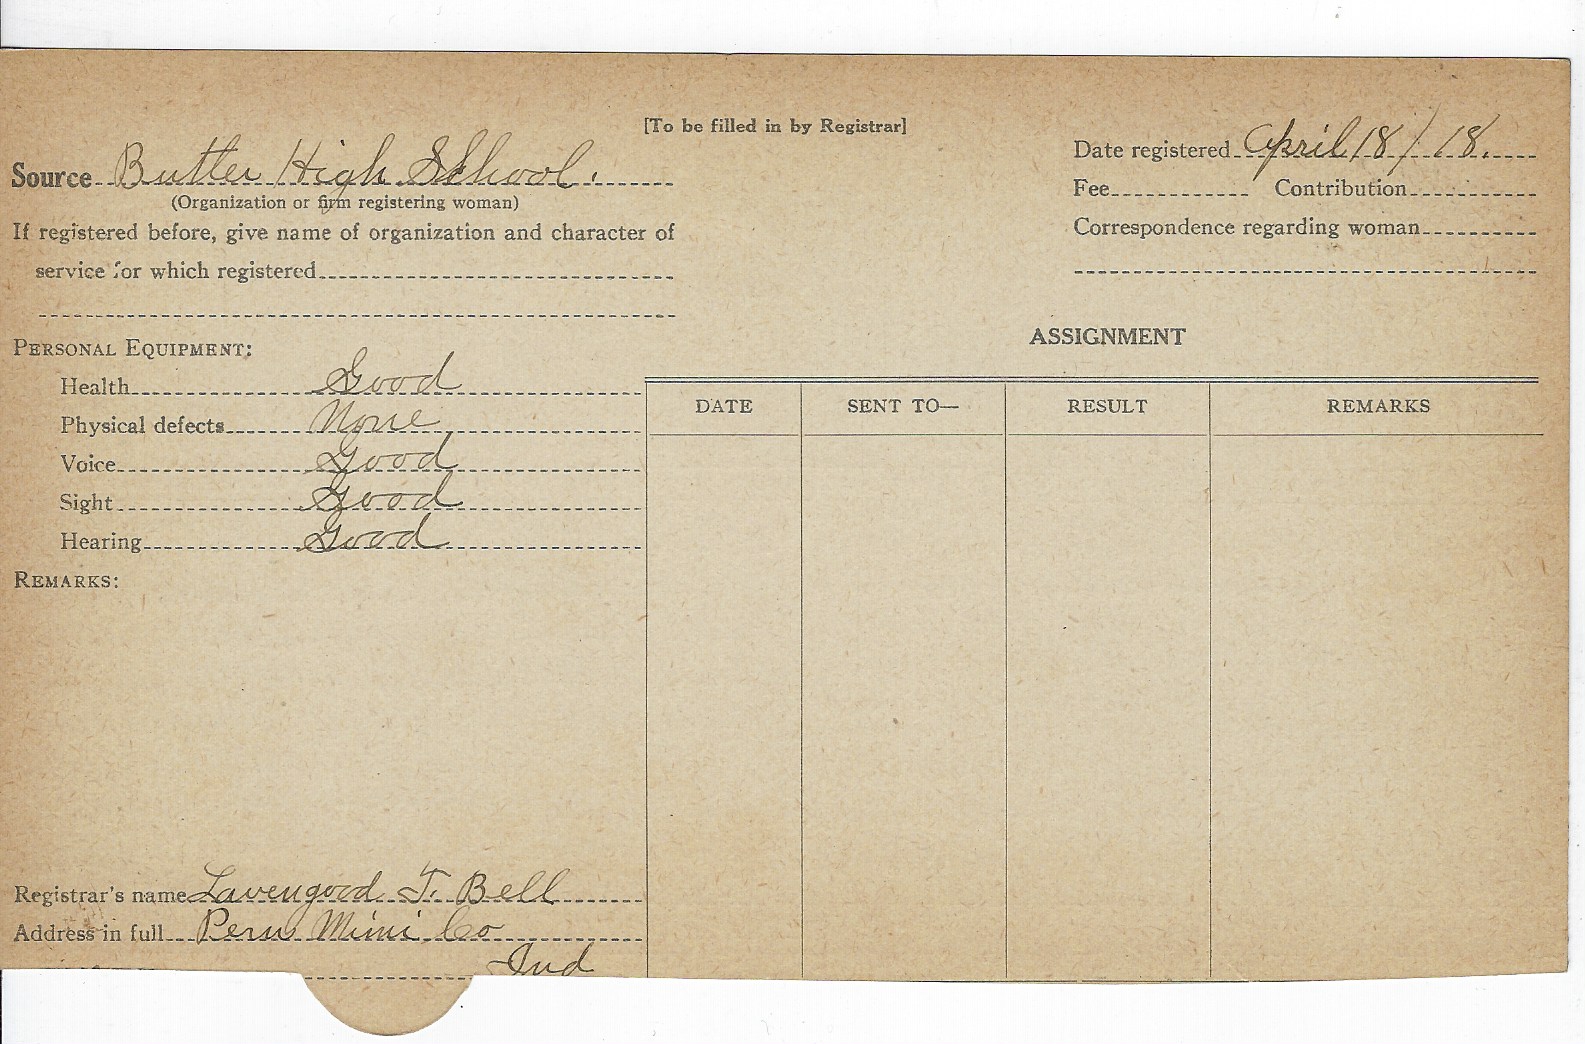 [To be filled in by Registrar]
Source Butler High School.
(Organization or firm registering woman)
If registered before, give name of organization and character of
service for which registered
Date registered April 18/18.
Fee Contribution
Correspondence regarding woman
PERSONAL EQUIPMENT:
Health Good
Physical defects None
Voice Good
Sight Good
Hearing Good
REMARKS:
ASSIGNMENT
DATE SENT TO— RESULT REMARKS
Registrar's name Lavengood T. Bell
Address in full Peru Mimi Co
Ind